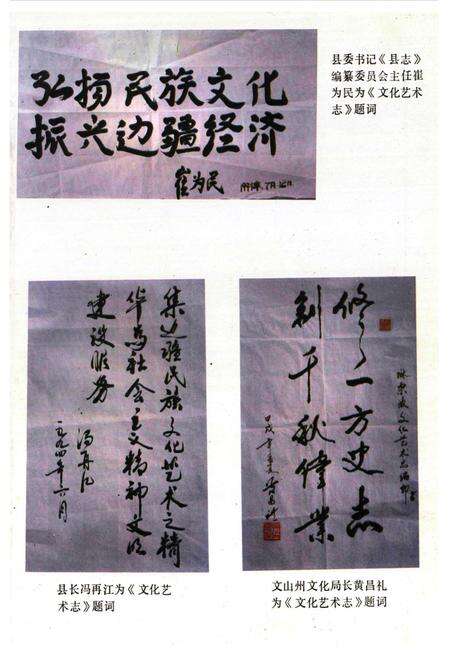 弘扬民族文化
振兴边疆经济
崔为民
县委书记《县志》
编纂委员会主任崔
为民为《文化艺术
志》题词
集边疆民族文化艺术之精
华为社会主义精神文明
建设服务
冯再江
一九九四年六月
修一方史志
创千秋伟业
县长冯再江为《文化艺
术志》题词
文山州文化局长黄昌礼
为《文化艺术志》题词